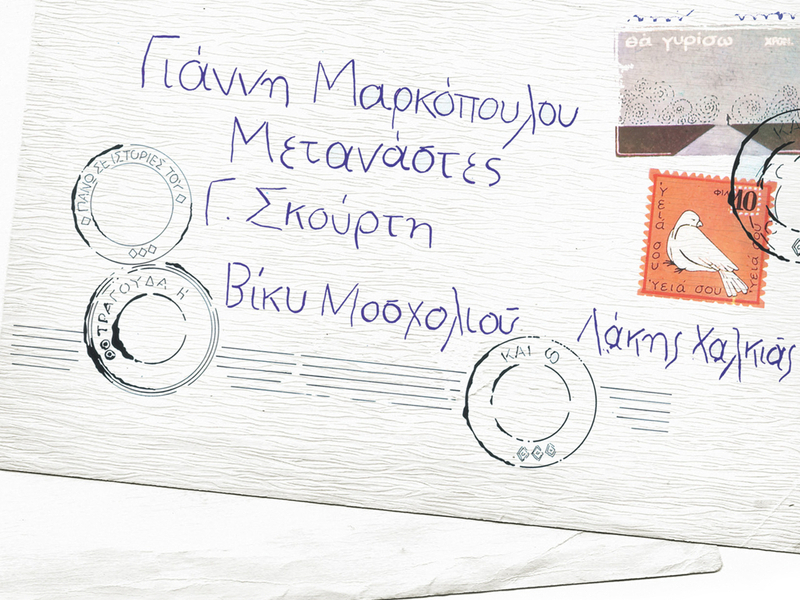 θά γυρίσω
ΧΡΟΝ.
Γιάννη Μαρκόπουλου
Μετανάστες
Γ. Σκούρτη
Βίκυ Μοσχολιού Λάκης Χαλκιάς
ΠΑΝΩ ΣΕ ΙΣΤΟΡΙΕΣ ΤΟΥ
ΤΡΑΓΟΥΔΑ Η
ΚΑΙ Ο
ΚΑΙ
10
Ὑειά σου
Ὑειά σου
Ὑειά σου